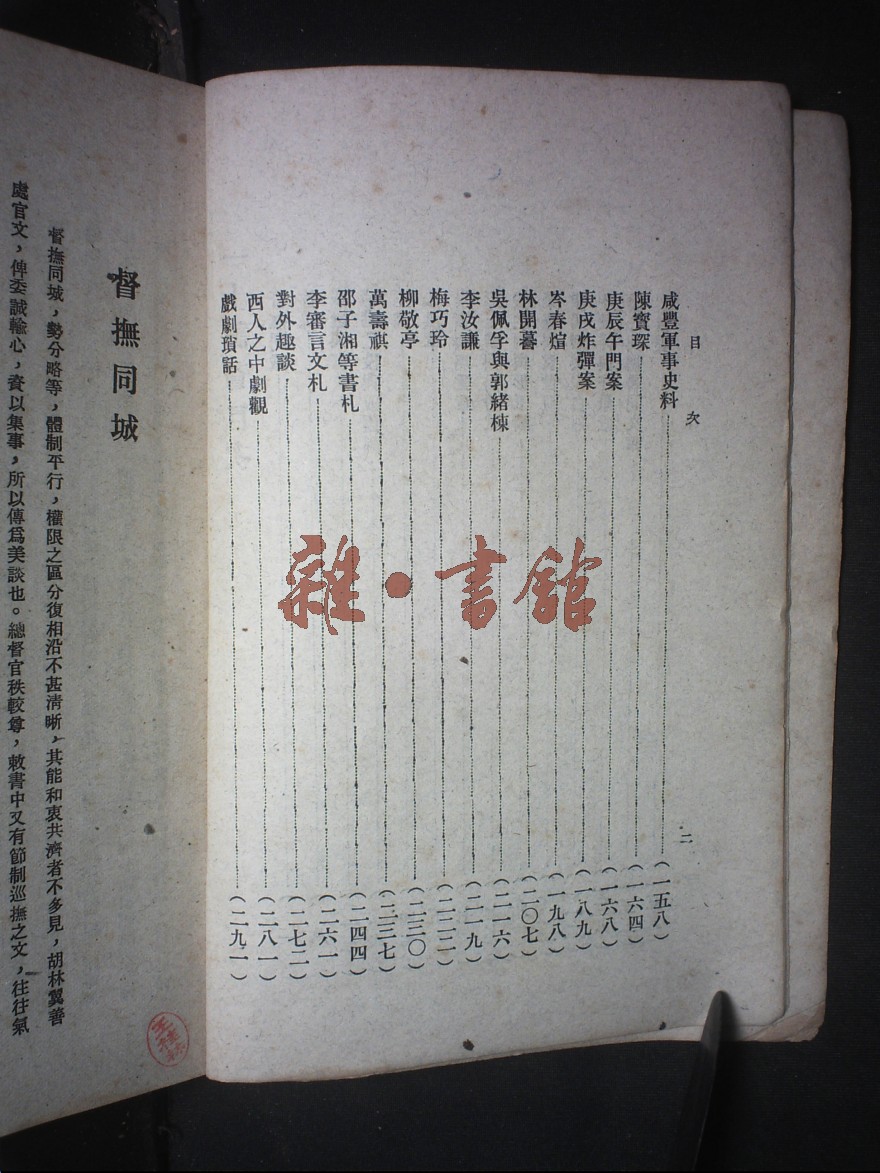 目次
二
咸豐軍事史料(一五八)
陳寶琛(一六四)
庚辰午門案(一六八)
庚戌炸彈案(一八九)
岑春煊(一九八)
林開謩(二〇七)
吳佩孚與郭緒棟(二一六)
李汝謙(二一九)
梅巧玲(二二二)
柳敬亭(二三〇)
萬壽祺(二三七)
邵子湘等書札(二四四)
李審言文札(二六一)
對外趣談(二七二)
西人之中劇觀(二八一)
戲劇瑣話(二九一)
督撫同城
督撫同城,勢分略等,體制平行,權限之區分復相沿不甚清晰,其能和衷共濟者不多見,胡林翼善
處官文,俾委誠輸心,資以集事,所以傳爲美談也。總督官秩較尊,敕書中又有節制巡撫之文,往往氣
雜·書館